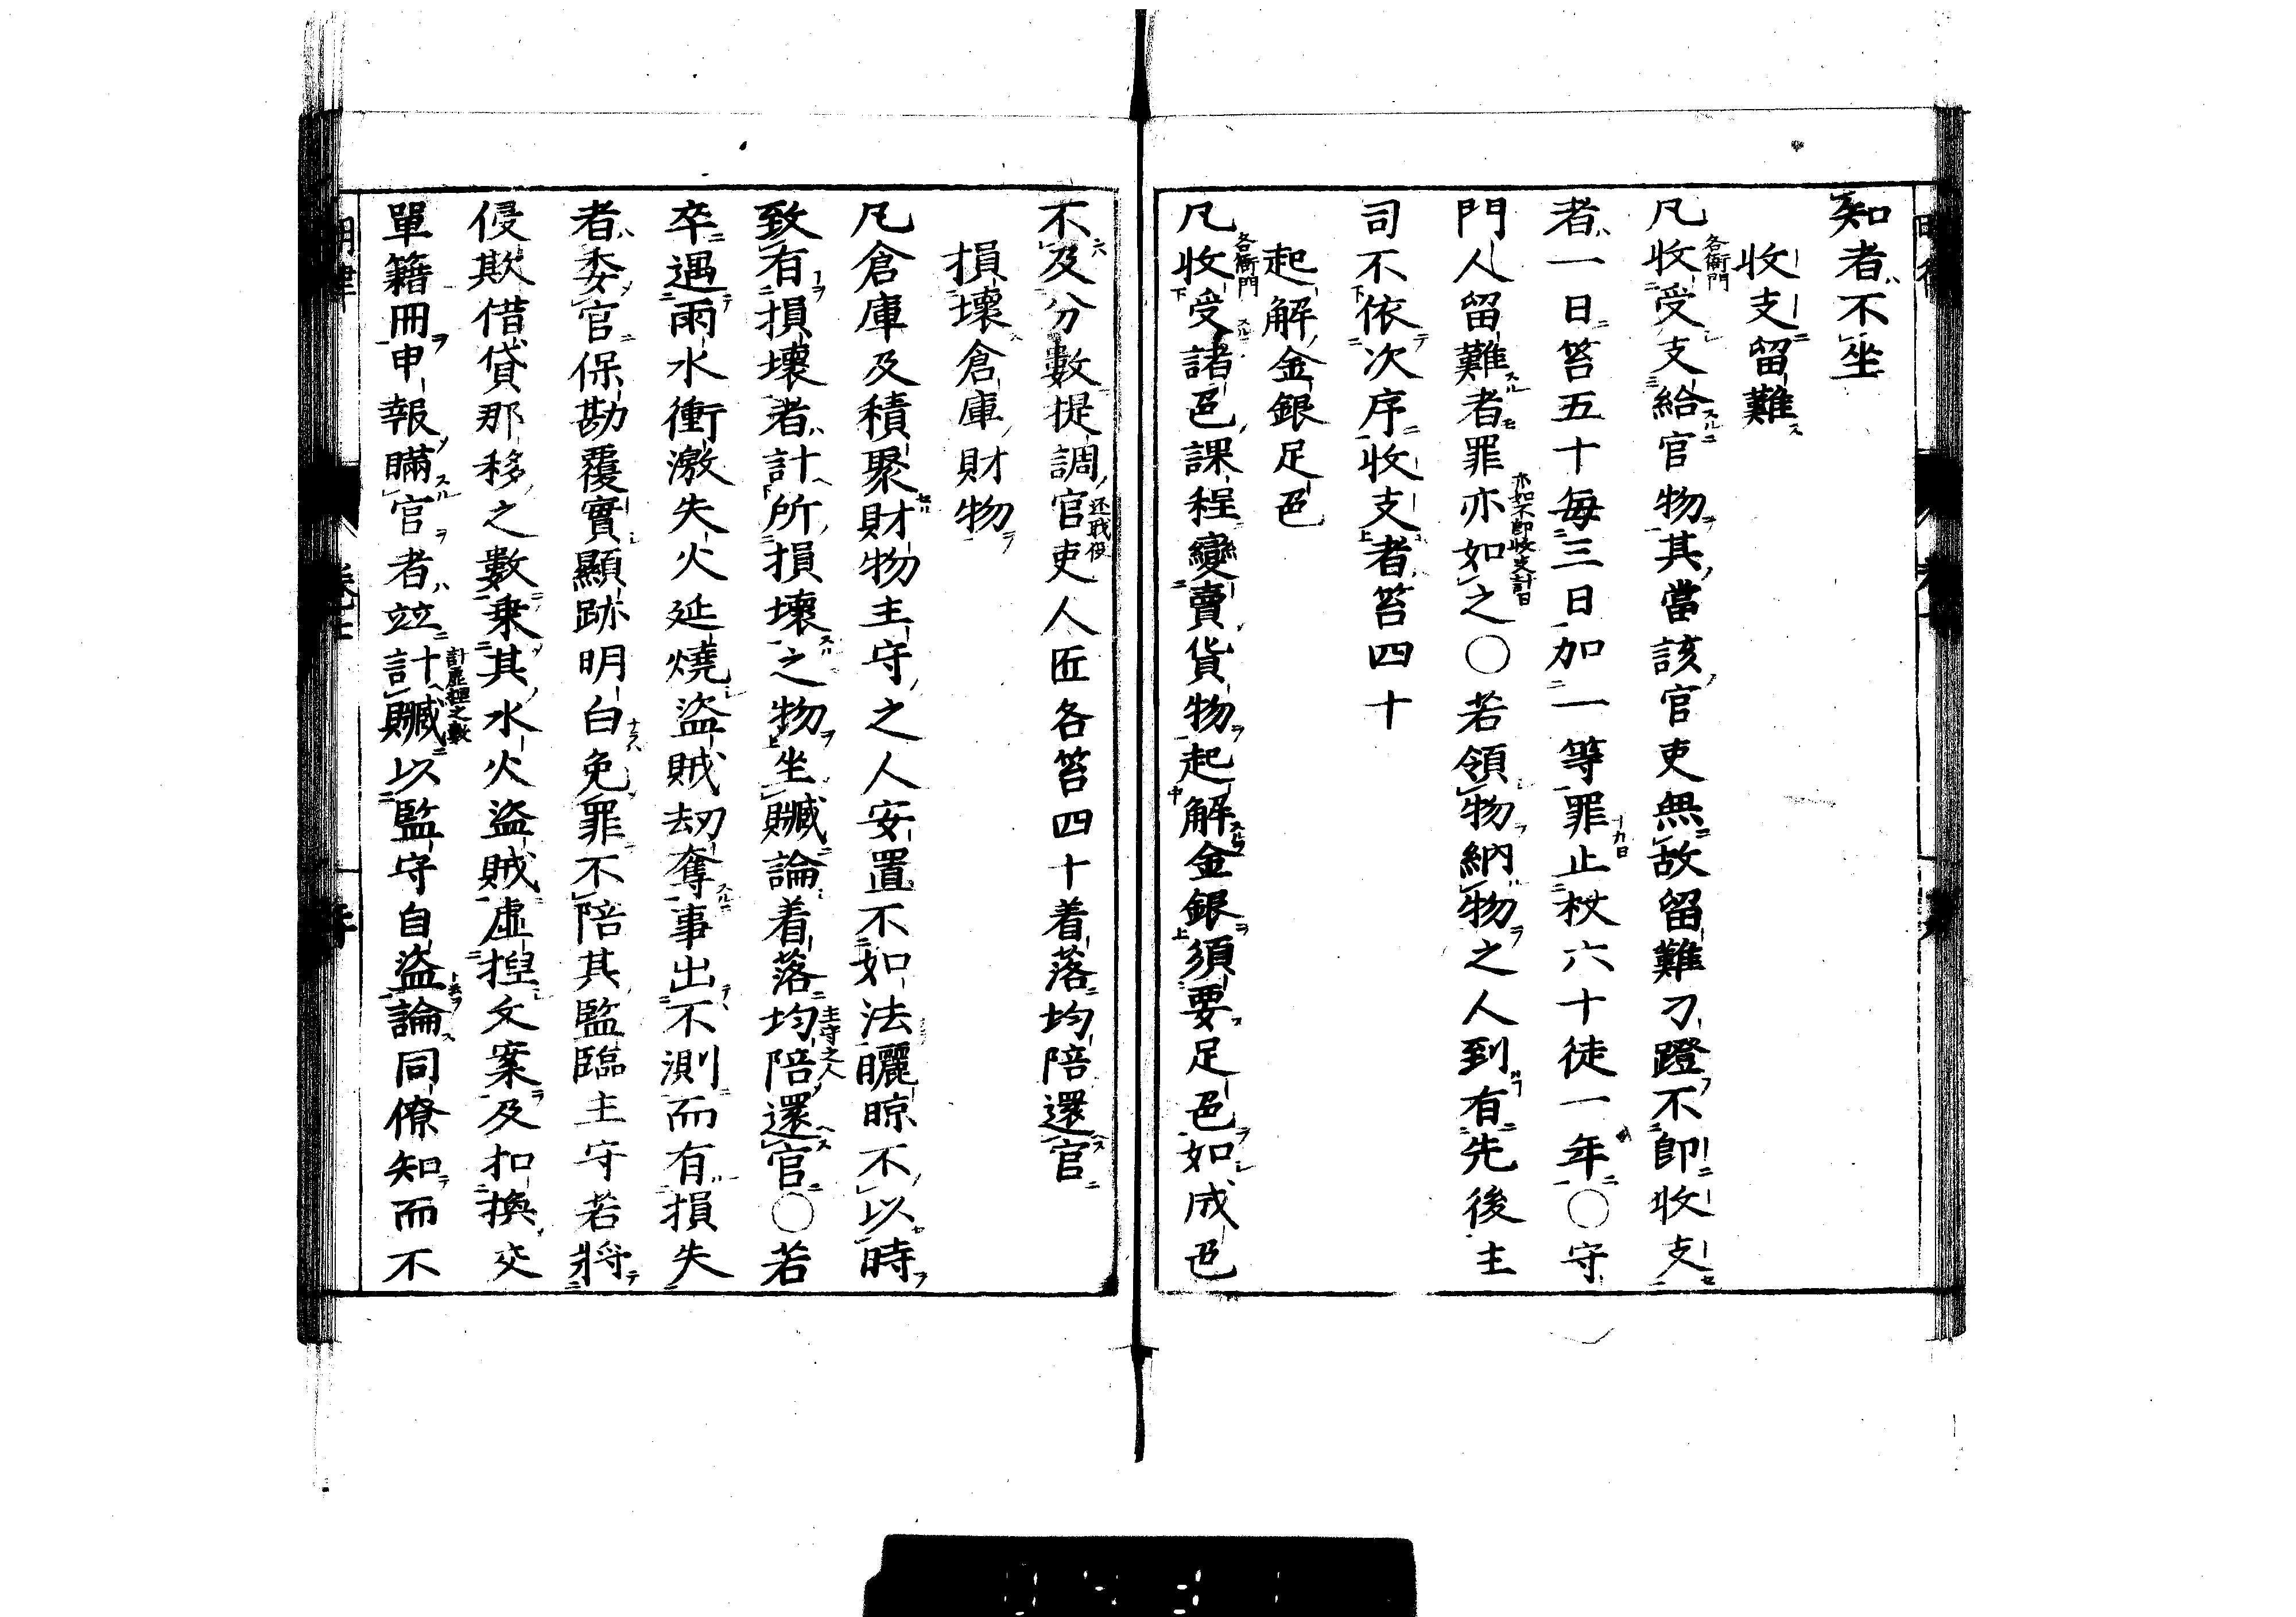 知者不坐
收支留難
凡收受支給官物其當該官吏無故留難刁蹬不即收支
各衙門
者一日笞五十每三日加一等罪止杖六十徒一年○守
十九日
門人留難者罪亦如之○若領物納物之人到有先後主
亦如不即收支計日
司不依次序收支者笞四十
起解金銀足色
凡收受諸色課程變賣貨物起解金銀須要足色如成色
各衙門
不及分數提調官吏人匠各笞四十着落均陪還官
損壞倉庫財物
凡倉庫及積聚財物主守之人安置不如法曬晾不以時
致有損壞者計所損壞之物坐贓論着落均陪還官○若
主守之人
卒遇雨水衝激失火延燒盜賊劫奪事出不測而有損失
者委官保勘覆實顯跡明白免罪不陪其監臨主守若將
侵欺借貸那移之數乗其水火盜賊虛揑文案及扣換交
單籍冊申報瞞官者竝計贓以監守自盜論同僚知而不
計虛揑之數